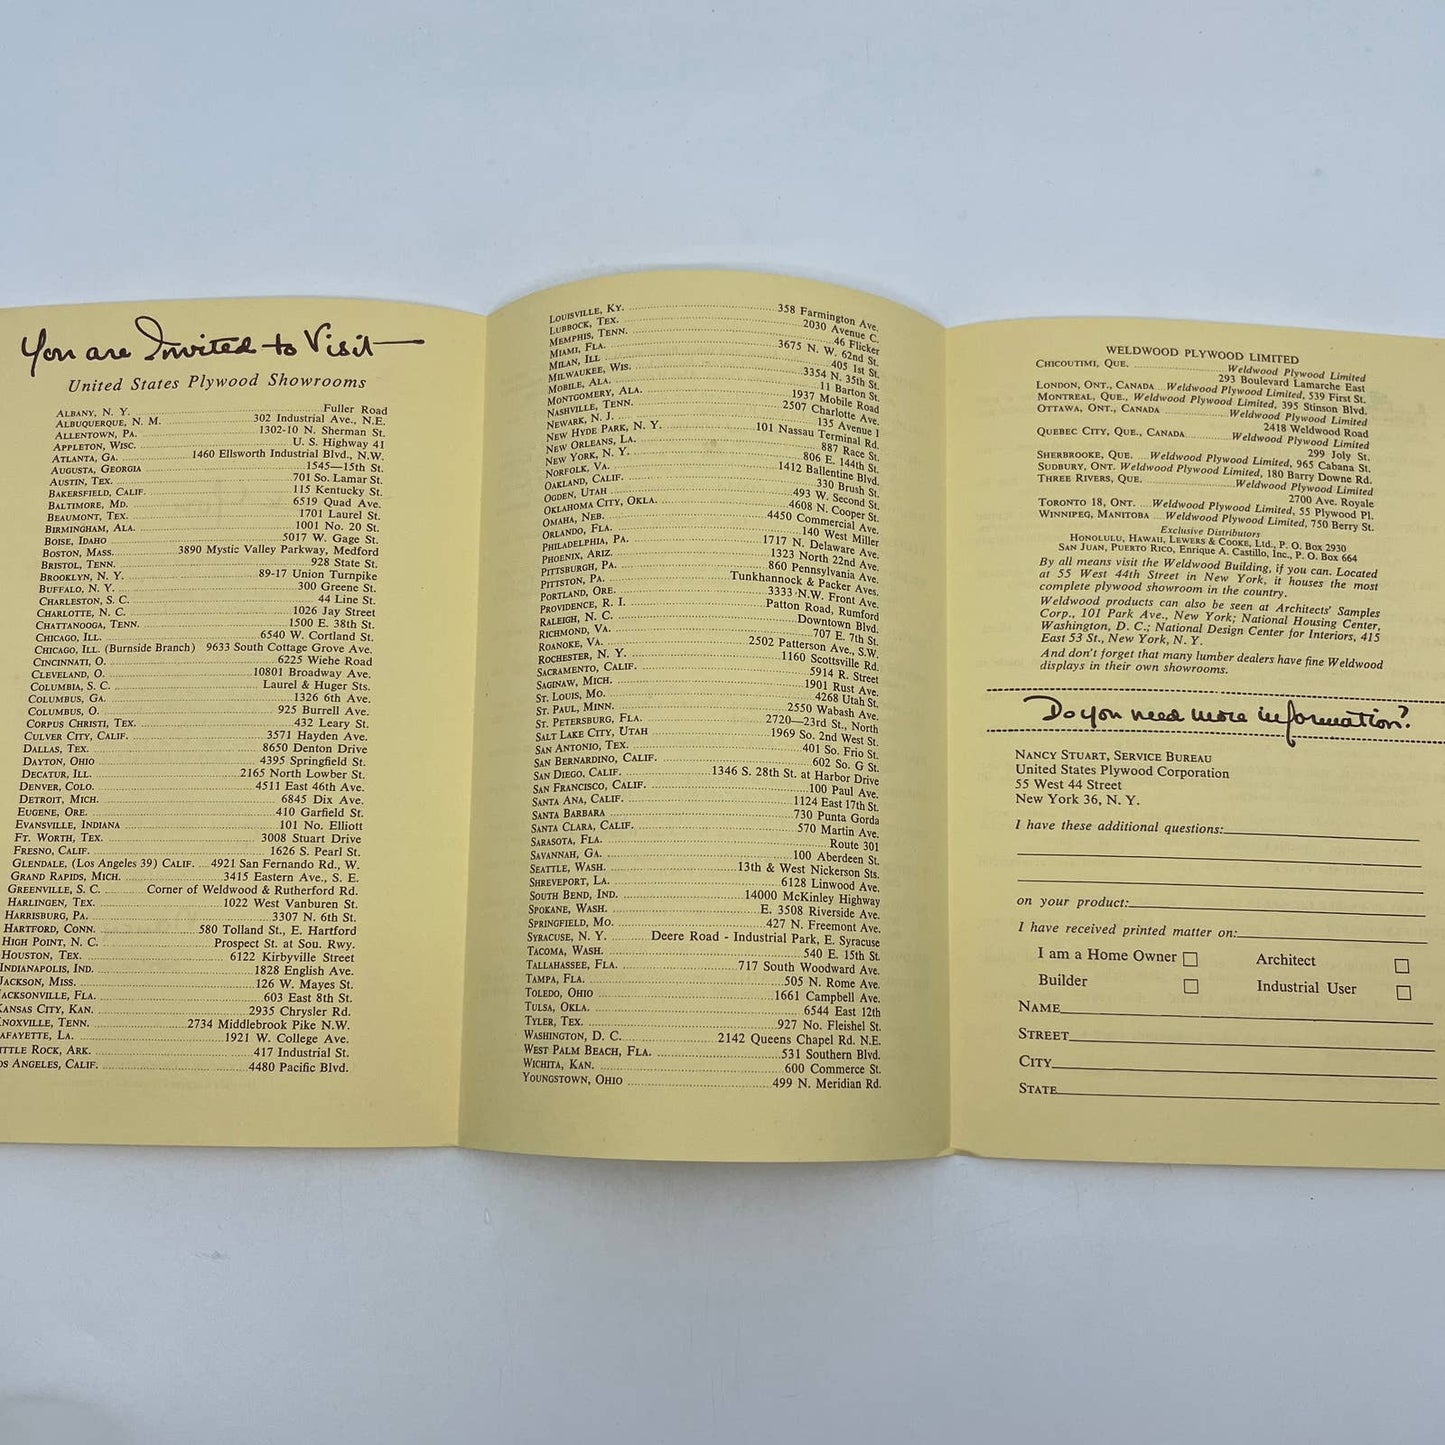 You are Invited to Visit—
United States Plywood Showrooms
ALBANY, N. Y. Fuller Road
ALBUQUERQUE, N. M. 302 Industrial Ave., N.E.
ALLENTOWN, PA. 1302-10 N. Sherman St.
APPLETON, WISC. U. S. Highway 41
ATLANTA, GA. 1460 Ellsworth Industrial Blvd., N.W.
AUGUSTA, GEORGIA 1545—15th St.
AUSTIN, TEX. 701 So. Lamar St.
BAKERSFIELD, CALIF. 115 Kentucky St.
BALTIMORE, MD. 6519 Quad Ave.
BEAUMONT, TEX. 1701 Laurel St.
BIRMINGHAM, ALA. 1001 No. 20 St.
BOISE, IDAHO 5017 W. Gage St.
BOSTON, MASS. 3890 Mystic Valley Parkway, Medford
BRISTOL, TENN. 928 State St.
BROOKLYN, N. Y. 89-17 Union Turnpike
BUFFALO, N. Y. 300 Greene St.
CHARLESTON, S. C. 44 Line St.
CHARLOTTE, N. C. 1026 Jay Street
CHATTANOOGA, TENN. 1500 E. 38th St.
CHICAGO, ILL. 6540 W. Cortland St.
CHICAGO, ILL. (Burnside Branch) 9633 South Cottage Grove Ave.
CINCINNATI, O. 6225 Wiehe Road
CLEVELAND, O. 10801 Broadway Ave.
COLUMBIA, S. C. Laurel & Huger Sts.
COLUMBUS, GA. 1326 6th Ave.
COLUMBUS, O. 925 Burrell Ave.
CORPUS CHRISTI, TEX. 432 Leary St.
CULVER CITY, CALIF. 3571 Hayden Ave.
DALLAS, TEX. 8650 Denton Drive
DAYTON, OHIO 4395 Springfield St.
DECATUR, ILL. 2165 North Lowber St.
DENVER, COLO. 4511 East 46th Ave.
DETROIT, MICH. 6845 Dix Ave.
EUGENE, ORE. 410 Garfield St.
EVANSVILLE, INDIANA 101 No. Elliott
FT. WORTH, TEX. 3008 Stuart Drive
FRESNO, CALIF. 1626 S. Pearl St.
GLENDALE, (Los Angeles 39) CALIF. 4921 San Fernando Rd., W.
GRAND RAPIDS, MICH. 3415 Eastern Ave., S. E.
GREENVILLE, S. C. Corner of Weldwood & Rutherford Rd.
HARLINGEN, TEX. 1022 West Vanburen St.
HARRISBURG, PA. 3307 N. 6th St.
HARTFORD, CONN. 580 Tolland St., E. Hartford
HIGH POINT, N. C. Prospect St. at Sou. Rwy.
HOUSTON, TEX. 6122 Kirbyville Street
INDIANAPOLIS, IND. 1828 English Ave.
JACKSON, MISS. 126 W. Mayes St.
ACKSONVILLE, FLA. 603 East 8th St.
KANSAS CITY, KAN. 2935 Chrysler Rd.
KNOXVILLE, TENN. 2734 Middlebrook Pike N.W.
AFAYETTE, LA. 1921 W. College Ave.
TTLE ROCK, ARK. 417 Industrial St.
OS ANGELES, CALIF. 4480 Pacific Blvd.
LOUISVILLE, KY. 358 Farmington Ave.
LUBBOCK, TEX. 2030 Avenue C.
MEMPHIS, TENN. 46 Flicker
MIAMI, FLA. 3675 N. W. 62nd St.
MILAN, ILL 405 1st St.
MILWAUKEE, WIS. 3354 N. 35th St.
MOBILE, ALA. 11 Barton St.
MONTGOMERY, ALA. 1937 Mobile Road
NASHVILLE, TENN. 2507 Charlotte Ave.
NEWARK, N. J. 135 Avenue 1
NEW HYDE PARK, N. Y. 101 Nassau Terminal Rd.
NEW ORLEANS, LA. 887 Race St.
NEW YORK, N. Y. 806 E. 144th St.
NORFOLK, VA. 1412 Ballentine Blvd.
OAKLAND, CALIF. 330 Brush St.
OGDEN, UTAH 493 W. Second St.
OKLAHOMA CITY, OKLA. 4608 N. Cooper St.
OMAHA, NEB. 4450 Commercial Ave.
ORLANDO, FLA. 140 West Miller
PHILADELPHIA, PA. 1717 N. Delaware Ave.
PHOENIX, ARIZ. 1323 North 22nd Ave.
PITTSBURGH, PA. 860 Pennsylvania Ave.
PITTSTON, PA. Tunkhannock & Packer Aves.
PORTLAND, ORE. 3333 N.W. Front Ave.
PROVIDENCE, R. I. Patton Road, Rumford
RALEIGH, N. C. Downtown Blvd.
RICHMOND, VA. 707 E. 7th St.
ROANOKE, VA. 2502 Patterson Ave., S.W.
ROCHESTER, N. Y. 1160 Scottsville Rd.
SACRAMENTO, CALIF. 5914 R. Street
SAGINAW, MICH. 1901 Rust Ave.
ST. LOUIS, MO. 4268 Utah St.
ST. PAUL, MINN. 2550 Wabash Ave.
ST. PETERSBURG, FLA. 2720—23rd St., North
SALT LAKE CITY, UTAH 1969 So. 2nd West St.
SAN ANTONIO, TEX. 401 So. Frio St.
SAN BERNARDINO, CALIF. 602 So. G St.
SAN DIEGO, CALIF. 1346 S. 28th St. at Harbor Drive
SAN FRANCISCO, CALIF. 100 Paul Ave.
SANTA ANA, CALIF. 1124 East 17th St.
SANTA BARBARA 730 Punta Gorda
SANTA CLARA, CALIF. 570 Martin Ave.
SARASOTA, FLA. Route 301
SAVANNAH, GA. 100 Aberdeen St.
SEATTLE, WASH. 13th & West Nickerson Sts.
SHREVEPORT, LA. 6128 Linwood Ave.
SOUTH BEND, IND. 14000 McKinley Highway
SPOKANE, WASH. E. 3508 Riverside Ave.
SPRINGFIELD, MO. 427 N. Freemont Ave.
SYRACUSE, N. Y. Deere Road - Industrial Park, E. Syracuse
TACOMA, WASH. 540 E. 15th St.
TALLAHASSEE, FLA. 717 South Woodward Ave.
TAMPA, FLA. 505 N. Rome Ave.
TOLEDO, OHIO 1661 Campbell Ave.
TULSA, OKLA. 6544 East 12th
TYLER, TEX. 927 No. Fleishel St.
WASHINGTON, D. C. 2142 Queens Chapel Rd. N.E.
WEST PALM BEACH, FLA. 531 Southern Blvd.
WICHITA, KAN. 600 Commerce St.
YOUNGSTOWN, OHIO 499 N. Meridian Rd.
WELDWOOD PLYWOOD LIMITED
CHICOUTIMI, QUE. Weldwood Plywood Limited
293 Boulevard Lamarche East
LONDON, ONT., CANADA Weldwood Plywood Limited, 539 First St.
MONTREAL, QUE., Weldwood Plywood Limited, 395 Stinson Blvd.
OTTAWA, ONT., CANADA Weldwood Plywood Limited
2418 Weldwood Road
QUEBEC CITY, QUE., CANADA Weldwood Plywood Limited
299 Joly St.
SHERBROOKE, QUE. Weldwood Plywood Limited, 965 Cabana St.
SUDBURY, ONT. Weldwood Plywood Limited, 180 Barry Downe Rd.
THREE RIVERS, QUE. Weldwood Plywood Limited
2700 Ave. Royale
TORONTO 18, ONT. Weldwood Plywood Limited, 55 Plywood Pl.
WINNIPEG, MANITOBA Weldwood Plywood Limited, 750 Berry St.
Exclusive Distributors
HONOLULU, HAWAII, LEWERS & COOKE, LTD., P. O. Box 2930
SAN JUAN, PUERTO RICO, Enrique A. Castillo, Inc., P. O. Box 664
By all means visit the Weldwood Building, if you can. Located
at 55 West 44th Street in New York, it houses the most
complete plywood showroom in the country.
Weldwood products can also be seen at Architects' Samples
Corp., 101 Park Ave., New York; National Housing Center,
Washington, D. C.; National Design Center for Interiors, 415
East 53 St., New York, N. Y.
And don't forget that many lumber dealers have fine Weldwood
displays in their own showrooms.
Do you need more information?
NANCY STUART, SERVICE BUREAU
United States Plywood Corporation
55 West 44 Street
New York 36, N. Y.
I have these additional questions:
on your product:
I have received printed matter on:
I am a Home Owner Architect
Builder Industrial User
NAME
STREET
CITY
STATE